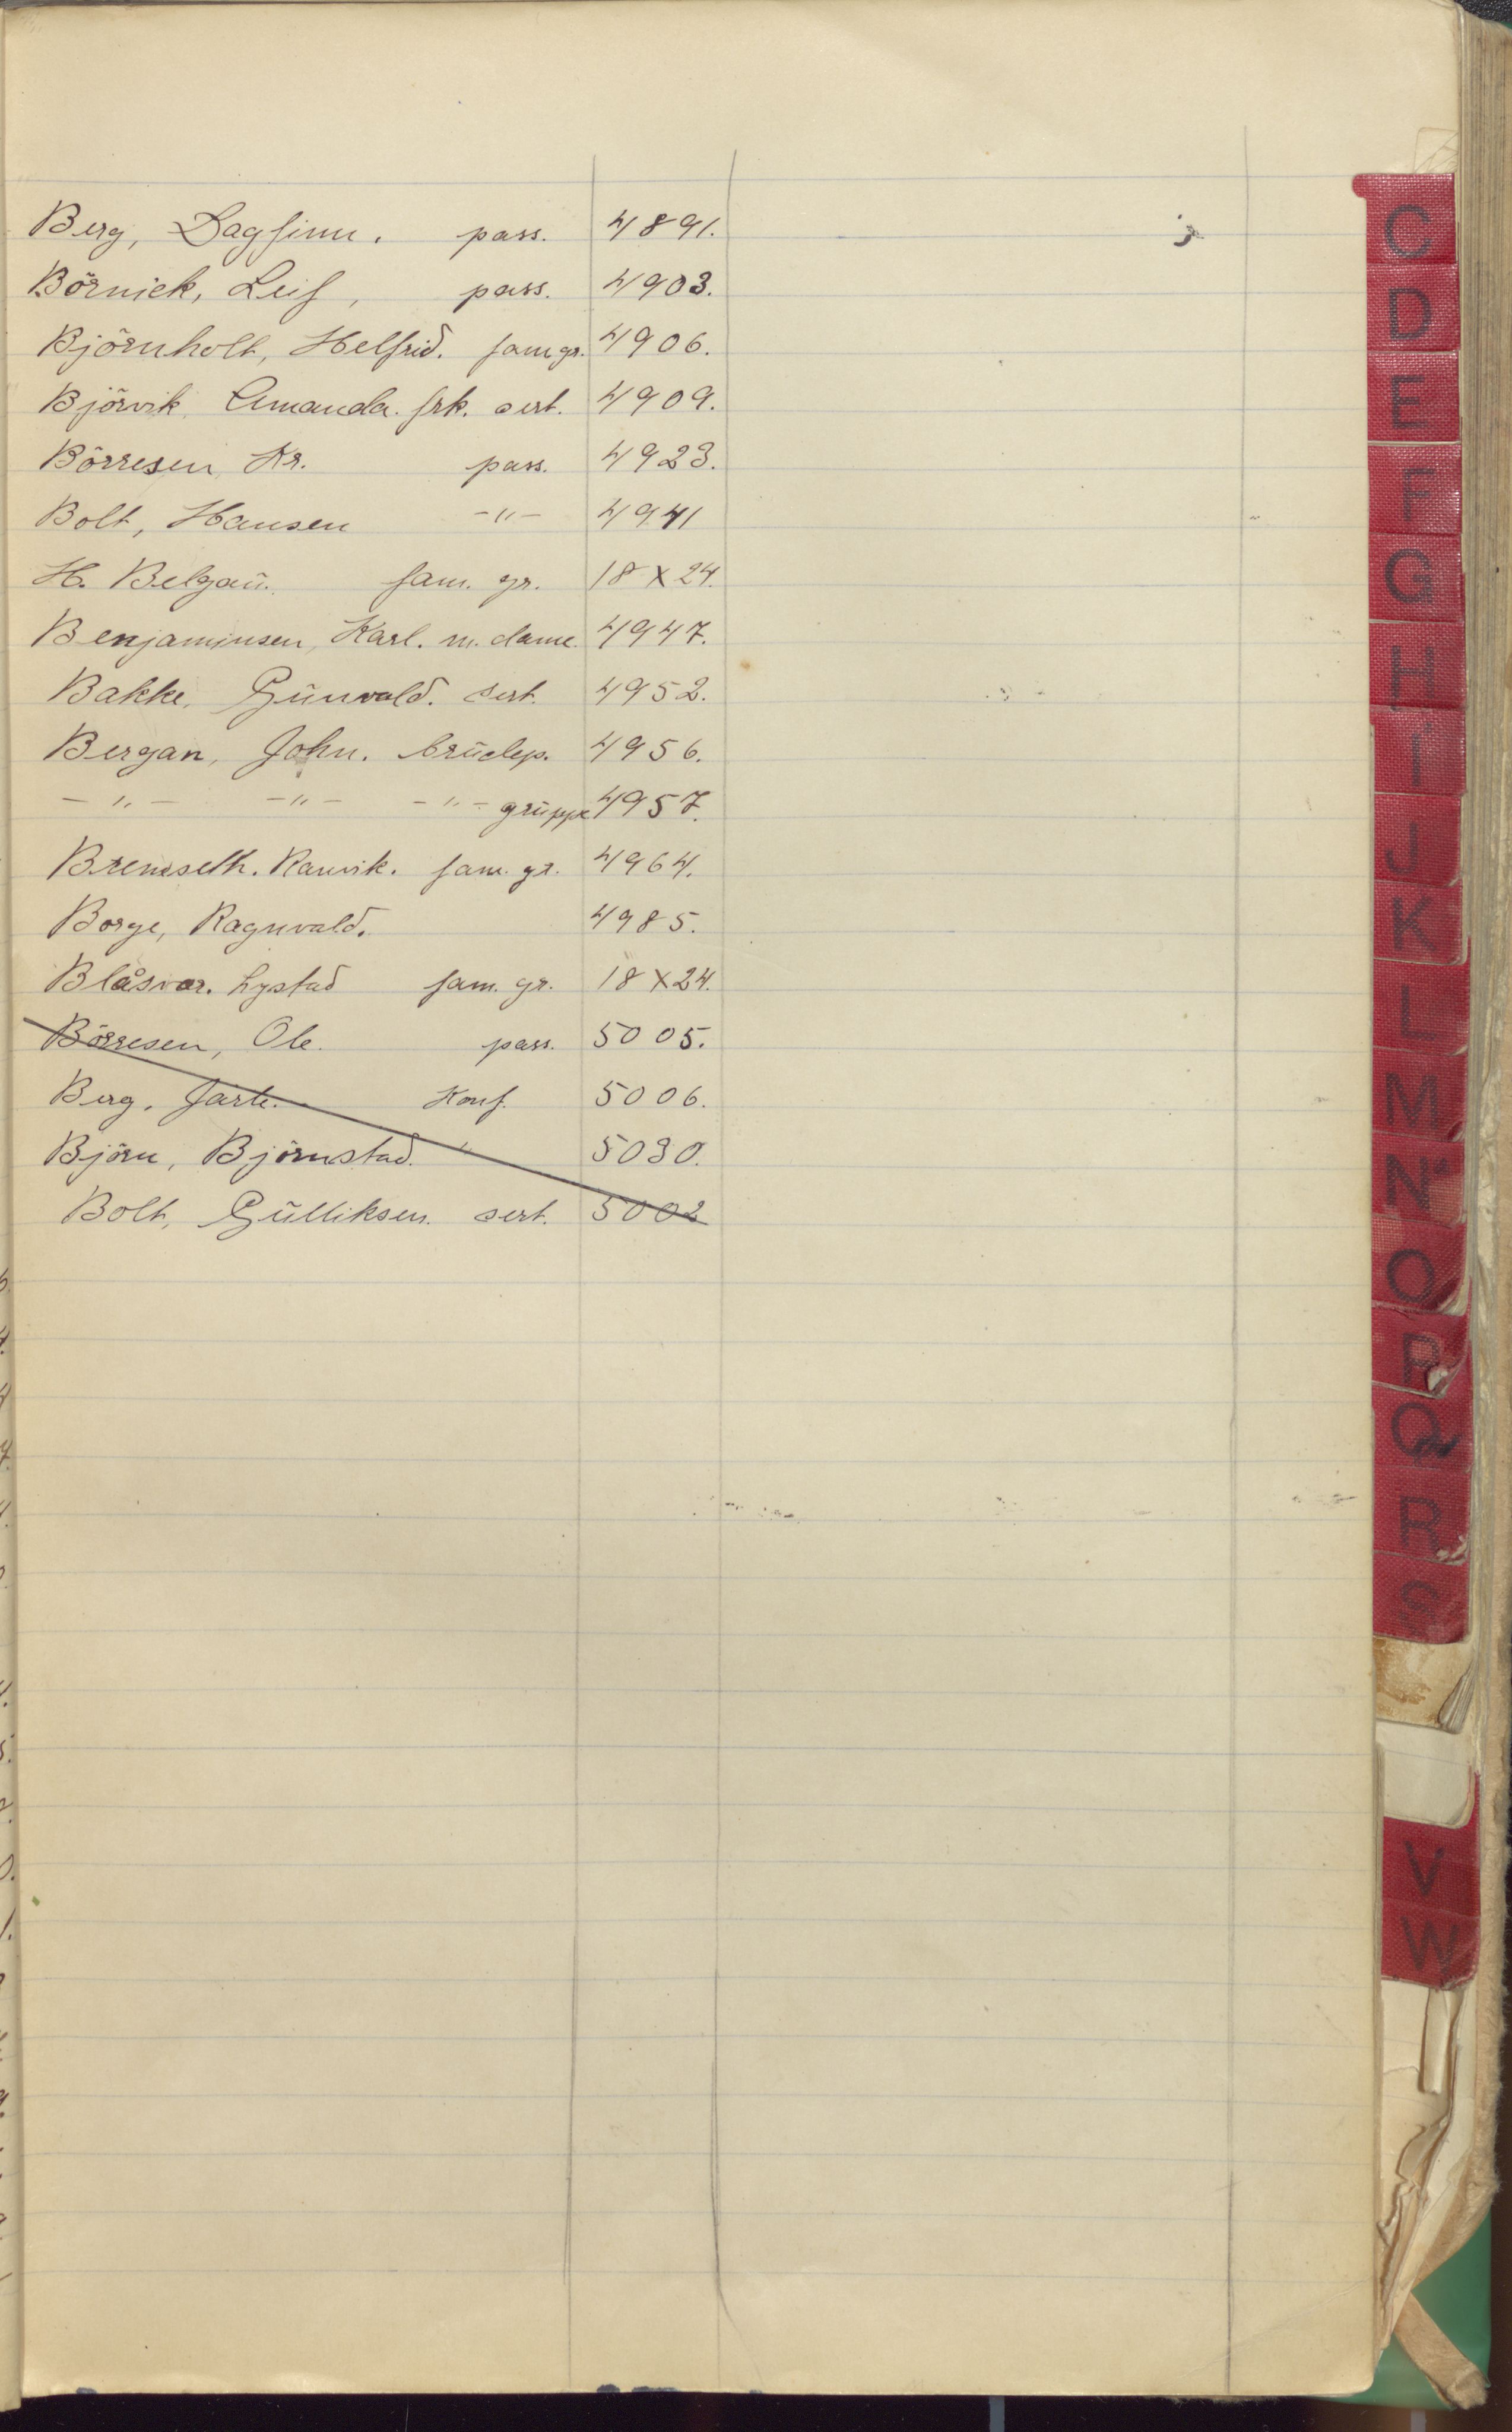 Berg, Dagfinn. pass. 4891.
Börnick, Leif, pass. 4903.
Björnholt, Helfrid. fam gr. 4906.
Björvik, Amanda. frk. sert. 4909.
Börresen, Kr. pass. 4923.
Bolt, Hansen -"- 4941
H. Belgaŭ. fam. gr. 18 x 24.
Benjaminsen, Karl. m. dame. 4947.
Bakke, Gŭnvald. sert. 4952.
Bergan, John. brŭdep. 4956.
-"- -"- -"- grŭppe 4957.
Bremseth. Ranvik. fam. gr. 4964.
Borge, Ragnvald. 4985.
Blåsvær. Lystad fam. gr. 18 x 24.
Börresen, Ole. pass. 5005.
Berg, Jarle. Konf. 5006.
Björn, Björnstad. " 5030.
Bolt, Gŭlliksen. sert. 5002
C
D
E
F
G
H
I
J
K
L
M
N
O
P
Q
R
S
V
W